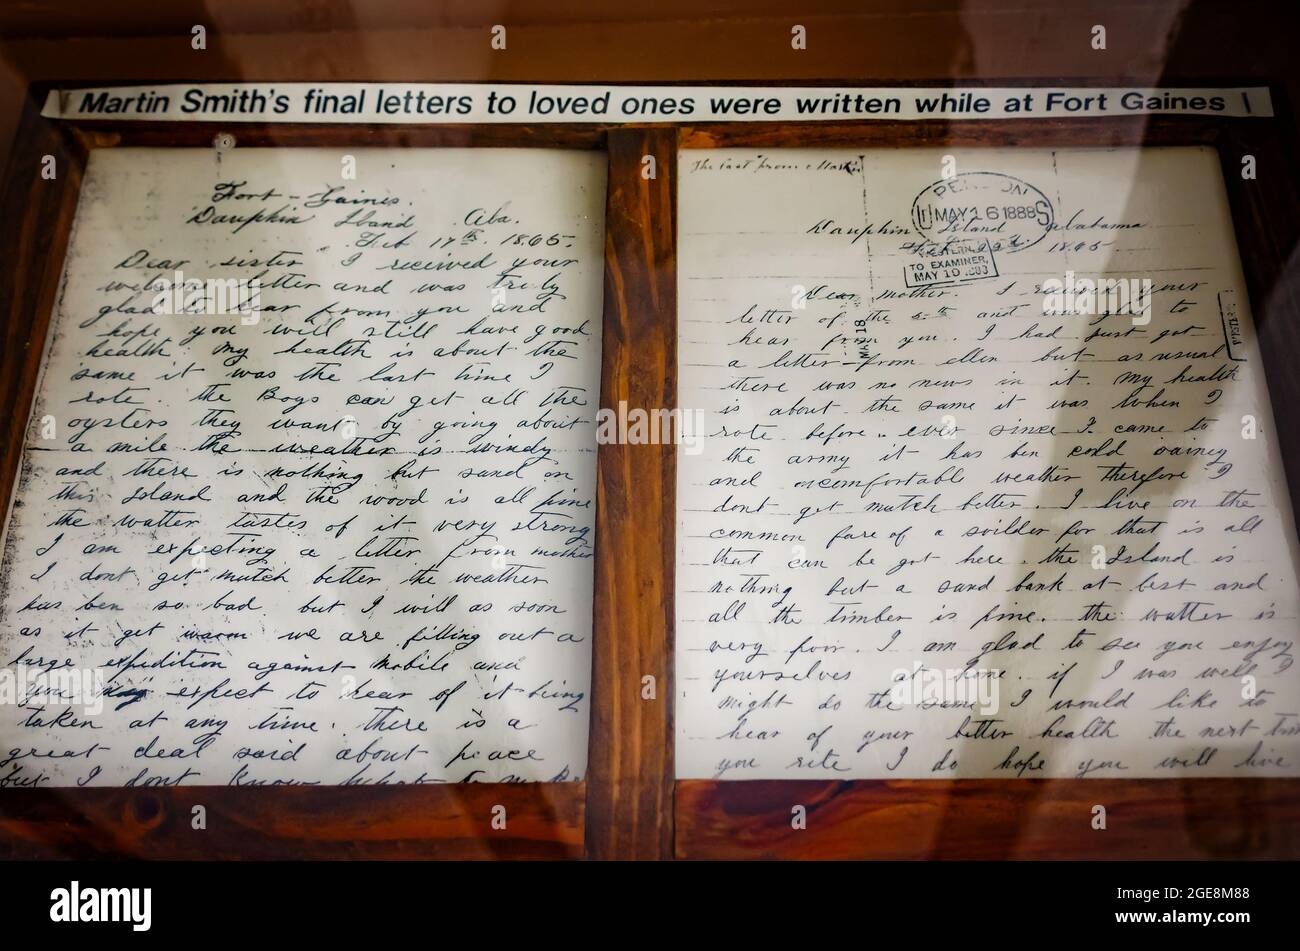 Martin Smith's final letters to loved ones were written while at Fort Gaines
Fort - Gaines.
Dauphin Iland Ala.
Feb 17th. 1865.
Dear sister I received your
welcome letter and was truly
glad to hear from you and
hope you will still have good
health. my health is about the
same it was the last time I
rote. the Boys can get all the
oysters they want by going about
a mile the weather is windy
and there is nothing but sand on
this Island and the wood is all pine
the watter tastes of it very strong
I am expecting a letter from mother
I dont get mutch better the weather
has ben so bad. but I will as soon
as it get warm we are fitting out a
large expidition against Mobile and
you may expect to hear of it being
taken at any time. there is a
great deal said about peace
but I dont know what to make
The last from
MAY 16 1888
Dauphin Island Alabama
1865
WESTERN
TO EXAMINER,
MAY 10
Dear mother. I received your
letter of the 5th and was glad to
hear from you. I had just got
a letter from ellen but as usual
there was no news in it. My health
is about the same it was when I
rote before. ever since I came to
the army it has ben cold rainey
and oncomfortable weather therefore I
dont get mutch better. I live on the
common fare of a soilder for that is all
that can be got here. the Island is
nothing but a sand bank at best and
all the timber is pine. the watter is
very poor. I am glad to see you enjoy
yourselves at home. if I was well I
might do the same I would like to
hear of your better health the next time
you rite I do hope you will live
MAY 18
alamy
Image ID: 2GE8M88
www.alamy.com